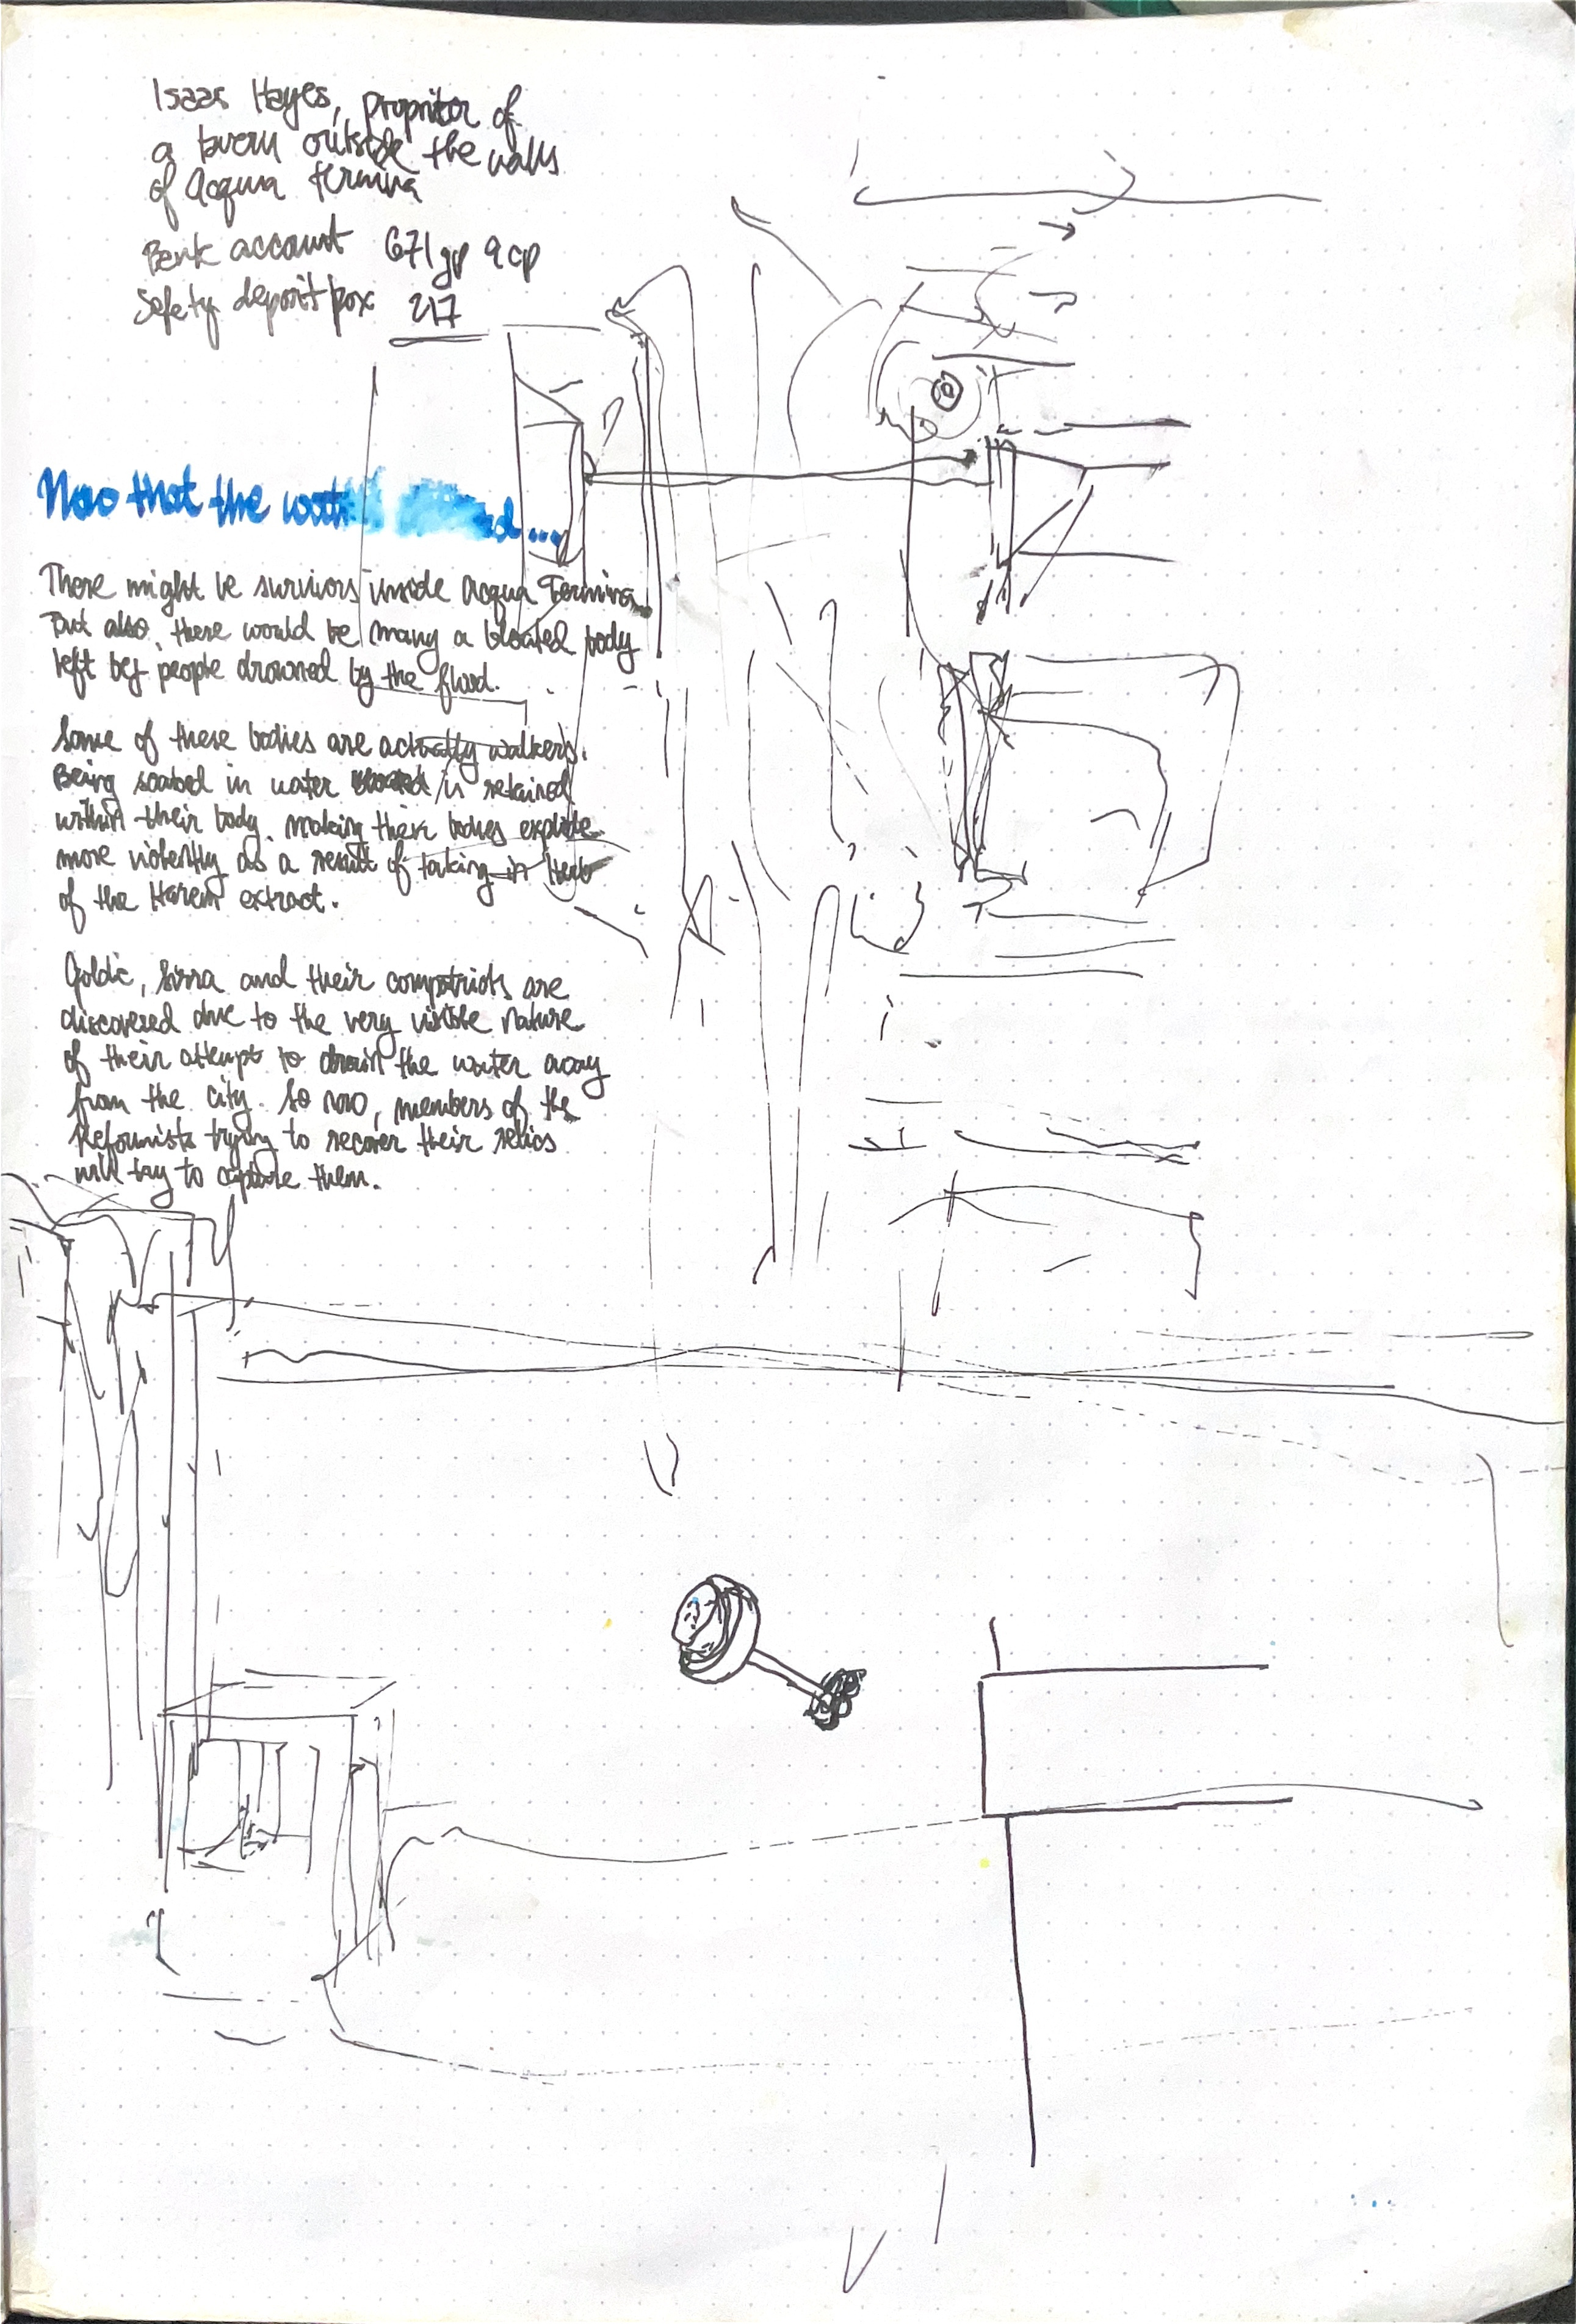 Isaas Hayes, propritor of
a tavern outside the walls
of Acqua Termina
Bank account 671gp 9cp
Safety deposit box 217
Now that the wat
There might be survivors inside Acqua Termina
But also, there would be many a bloated body
left by people drowned by the flood.
Some of these bodies are actually walkers.
Being soaked in water is retained
within their body, making their bodies explode
more violently as a result of taking in Herb
of the Harem extract.
Goldie, Sirra and their compatriots are
discovered due to the very visible nature
of their attempt to drain the water away
from the city. So now, members of the
Reformists trying to recover their relics
will try to capture them.